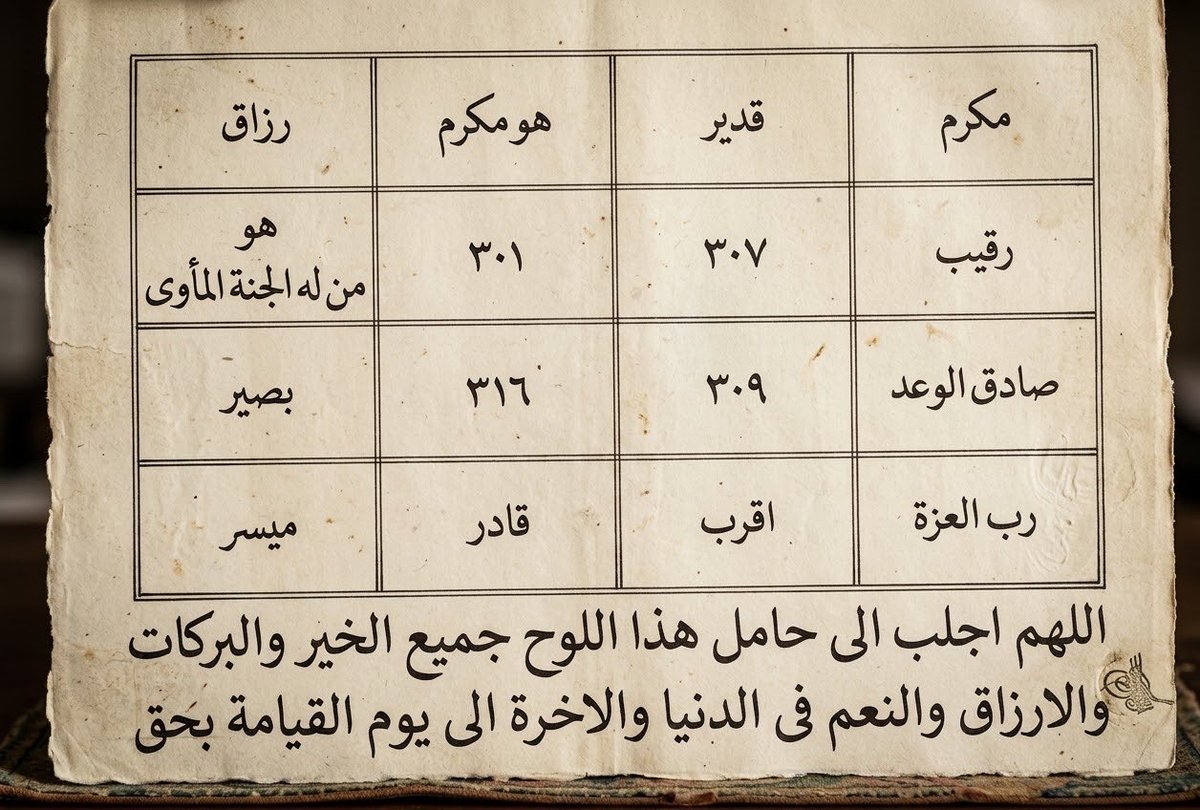 مكرم قدير هو مكرم رزاق
رقيب ٣٠٧ ٣٠١ هو
من له الجنة المأوى
صادق الوعد ٣٠٩ ٣١٦ بصير
رب العزة اقرب قادر ميسر
اللهم اجلب الى حامل هذا اللوح جميع الخير والبركات
والارزاق والنعم فى الدنيا والاخرة الى يوم القيامة بحق